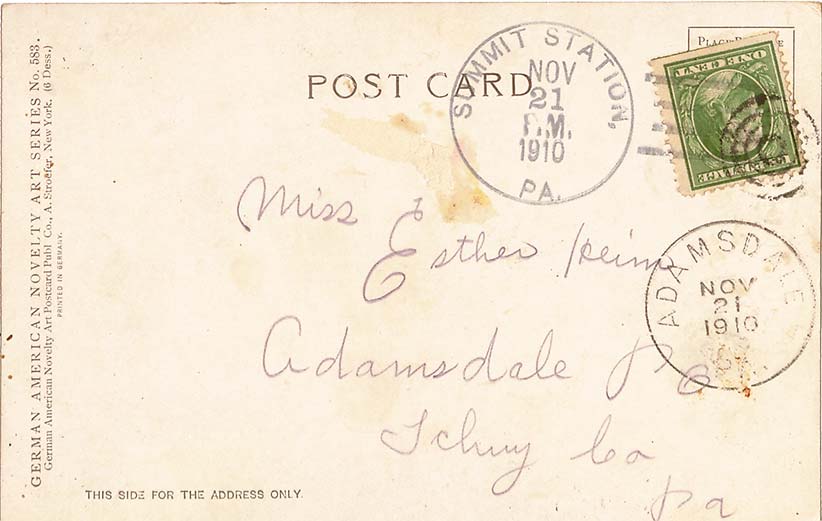 GERMAN AMERICAN NOVELTY ART SERIES No. 583.
German American Novelty Art Postcard Publ. Co., A. Stroefer, New York. (6 Dess.)
PRINTED IN GERMANY.
POST CARD
SUMMIT STATION,
NOV
21
P.M.
1910
PA.
ONE CENT
Miss
Esther Heim
ADAMSDALE
NOV
21
1910
Adamsdale P O
Schuy Co
Pa
THIS SIDE FOR THE ADDRESS ONLY.